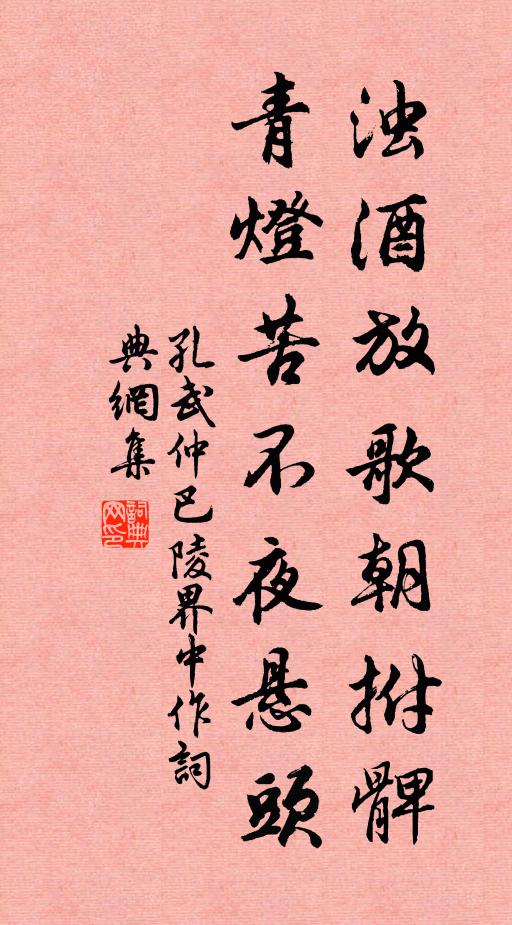 浊酒放歌朝拊髀
青燈苦不夜悬頭
孔武仲巴陵界中作詞
典網集
詞典网印